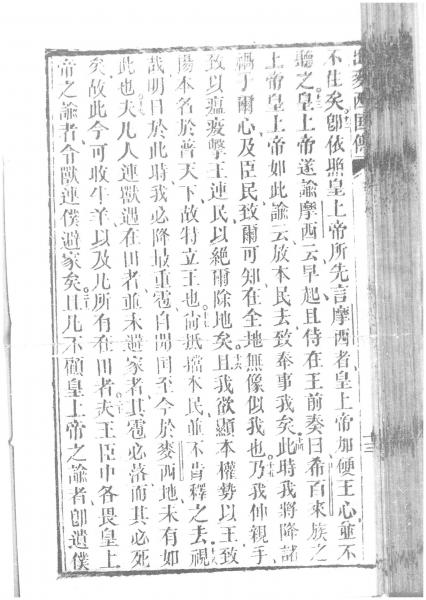 出麥西國傳
不住矣十二即依照皇上帝所先言摩西者皇上帝加硬王心並不
聽之十三皇上帝遂諭摩西云早起且侍在王前奏曰希百來族之
上帝皇上帝如此諭云放本民去致奉事我矣十四此時我將降諸
禍于爾心及臣民致爾可知在全地無像似我也十五乃我伸親手
致以瘟疫擊王連民以絕爾除地矣十六且我欲顯本權勢以王致
揚本名於普天下故特立王也十七尚抵擋本民並不肯釋之去十八視
哉明日於此時我必降最重雹自開國至今於麥西地未有如
此也十九夫凡人連獸遇在田者並未避家者其雹必落而其必死
矣故此今可收牛羊以及凡所有在田者二十夫王臣中各畏皇上
帝之諭者令獸連僕避家矣二十一且凡不顧皇上帝之諭者即遺僕